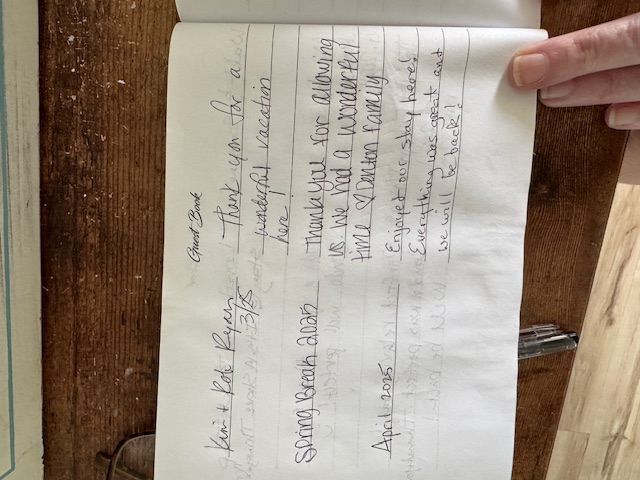 Guest Book
Kim + Rob Ryan Thank you for a
3/25 wonderful vacation
here.
Spring Break 2025 Thank you for allowing
us. We had a wonderful
time ♡ Denton Family
April 2025 Enjoyed our stay here!
Everything was great and
we will be back!!